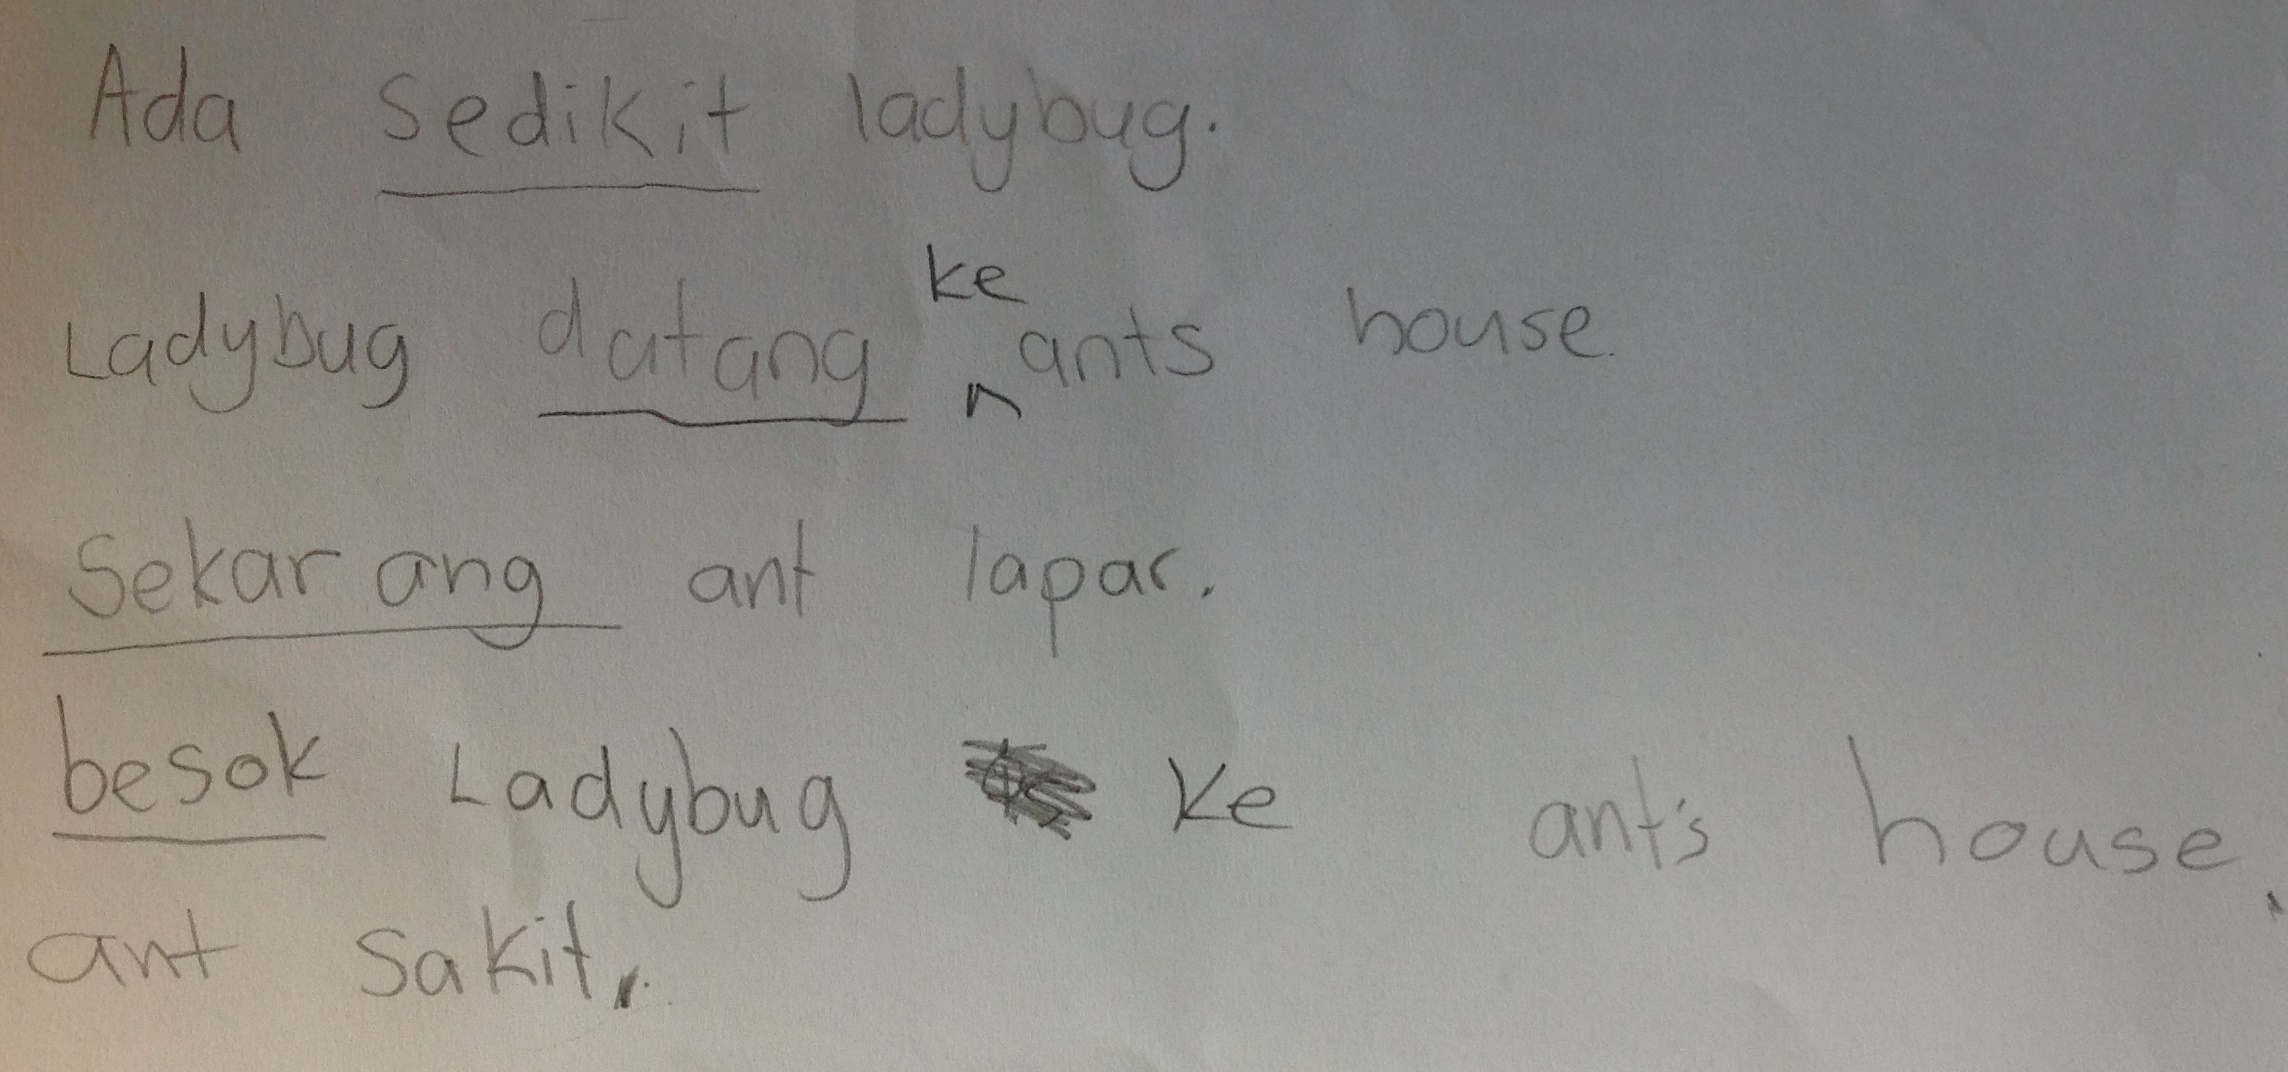 Ada sedikit ladybug.
Ladybug datang ke ants house.
Sekarang ant lapar.
besok Ladybug ke ant's house.
ant sakit.